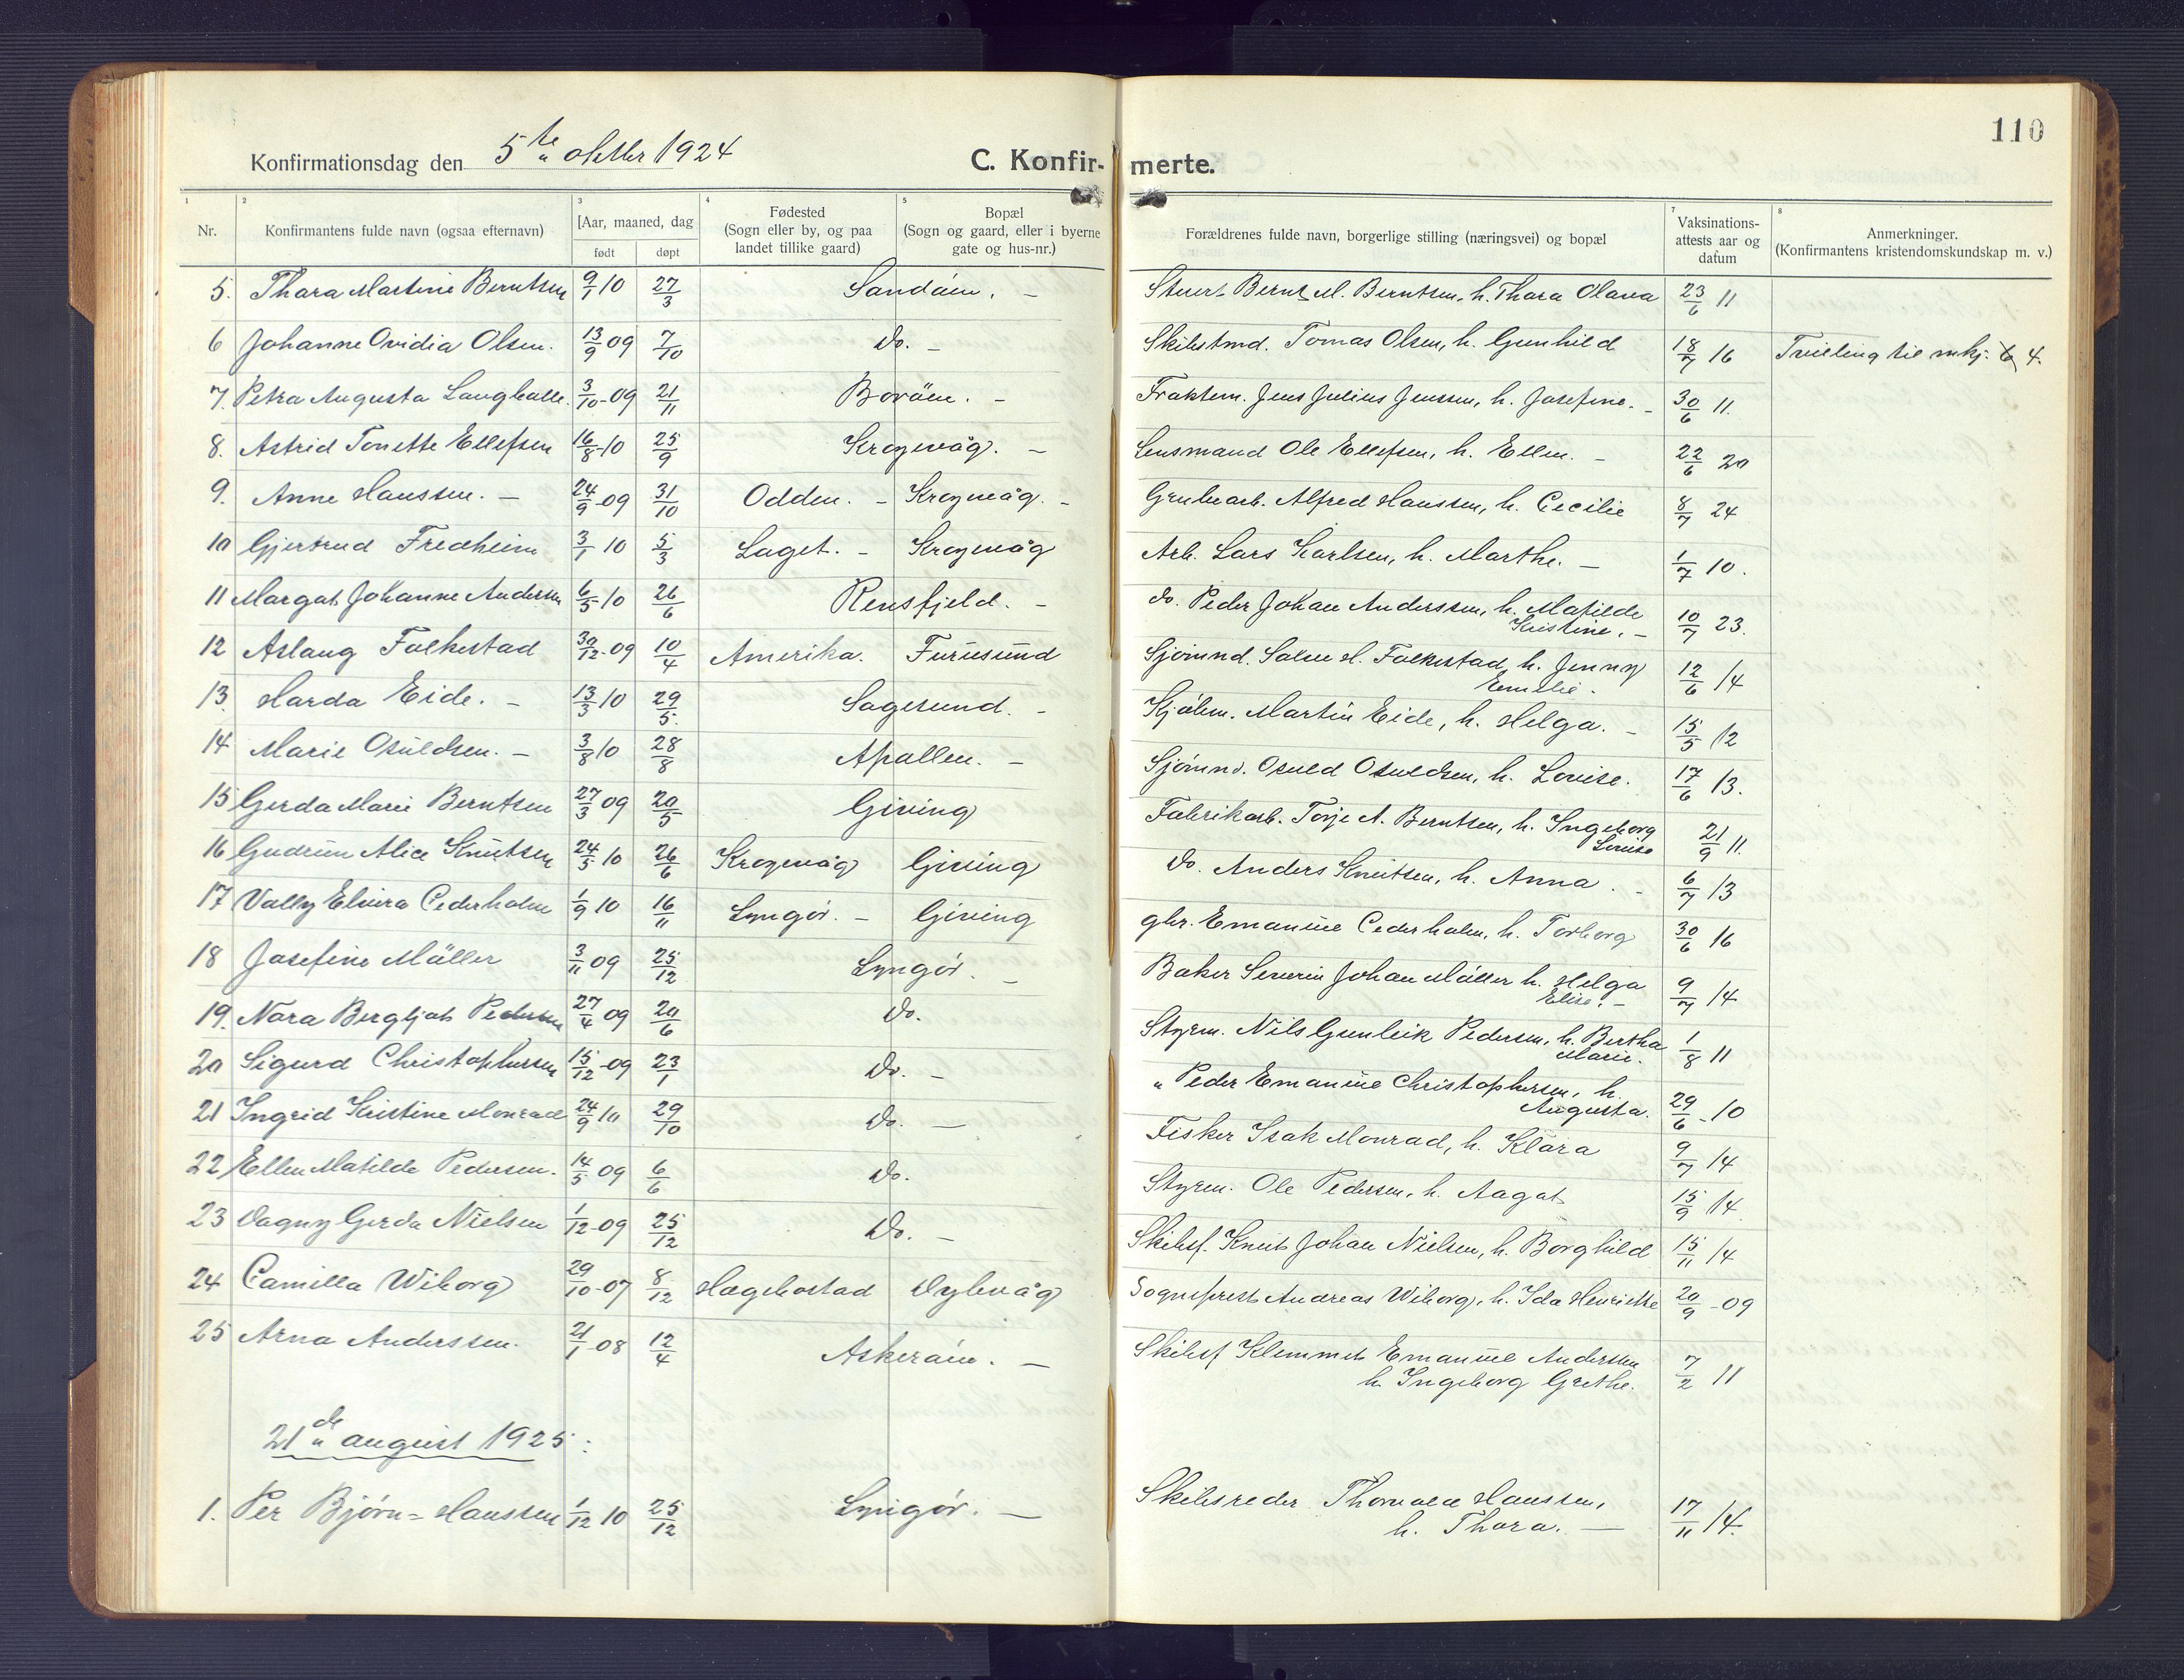 110
Konfirmationsdag den 5te oktbr 1924
C. Konfir- merte.
1 2 3 4 5 7 8
Nr. Konfirmantens fulde navn (ogsaa efternavn) Aar, maaned, dag født døpt Fødested (Sogn eller by, og paa landet tillike gaard) Bopæl (Sogn og gaard, eller i byerne gate og hus-nr.) Forældrenes fulde navn, borgerlige stilling (næringsvei) og bopæl Vaksinations-attests aar og datum Anmerkninger. (Konfirmantens kristendomskundskap m. v.)
5. Thara Martine Berntsen 9/1 10 27/3 Sandøien. - Stuert Bernt M. Berntsen, h. Thara Olava 23/6 11
6 Johanne Ovidia Olsen. 13/9 09 7/10 Do. - Skibstmd. Tomas Olsen, h. Gunhild 18/7 16 Tvilling til mkj. 4.
7. Petra Augusta Langballe. 3/10-09 21/11 Borøen. - Fraktem. Jens Julius Jenssen, h. Josefine. - 30/6 11.
8. Astrid Tonette Ellefsen 16/8-10 25/9 Krogevåg. - Lensmand Ole Ellefsen, h. Ellen. - 22/6 20
9. Anne Hanssen. - 24/9-09 31/10 Odden. - Krogevåg. - Grubearb. Alfred Hanssen, h. Cecilie 8/7 24
10 Gjertrud Fredheim 3/1 10 5/3 Laget. - Krogevåg Arb. Lars Karlsen, h. Marthe. - 1/7 10.
11 Margat Johanne Andersen 6/5 10 26/6 Rensfjeld. - do. Peder Johan Anderssen, h. Matilde
Kristine. - 10/7 23.
12 Aslaug Folkestad 30/12-09 10/4 Amerika. Furusund Sjømnd. Salve H. Folkestad, h. Jenny
Emilie. 12/6 14
13. Harda Eide. - 13/3 10 29/5. Sagesund. - Kjølem. Martin Eide, h. Helga. - 15/5 12
14 Marie Osuldsen. - 3/8 10 28/8 Apallen. - Sjømnd. Osuld Osuldsen, h. Lovise. 17/6 13.
15 Gerda Marie Berntsen 27/3 09 20/5 Giving Fabrikarb. Torje A. Berntsen, h. Ingeborg
Lovise 21/9 11.
16 Gudrun Alice Knutsen 24/5 10 26/6 Krogevåg Giving Do. Anders Knutsen, h. Anna. - 6/7 13
17 Vally Elvira Cederholm 1/9 10 16/11 Lyngør. - Giving gbr. Emanuel Cederholm, h. Torborg 30/6 16
18 Josefine Møller 3/11 09 25/12 Lyngør. - Baker Severin Johan Møller h. Helga
Elise. - 9/7 14
19. Nora Bergljot Pedersen 27/4 09 20/6 Do. Styrm. Nils Gunleik Pedersen, h. Bertha
Marie. 1/8 11
20 Sigurd Christophersen 15/12-09 23/1 Do. - " Peder Emanuel Christophersen, h.
Augusta. 29/6-10
21 Ingrid Kristine Monrad 24/9 10 29/10 Do. - Fisker Isak Monrad, h. Klara 9/7 14
22 Ellen Matilde Pedersen. 14/5-09 6/6 Do. Styrm. Ole Pedersen, h. Aagat 15/9 14
23 Dagny Gerda Nielsen 1/12-09 25/12 Do. - Skibsf. Knut Johan Nielsen, h. Borghild 15/11 14
24 Camilla Wiborg 29/10-07 8/12 Hægebostad Dybvåg Sogneprest Andreas Wiborg, h. Ida Henriette 20/9-09
25 Arna Anderssen. 21/1-08 12/4 Askerøien. - Skibsf Klemmet Emanuel Anderssen
h. Ingeborg Grethe. 7/2 11
21de august 1925:
1. Per Bjørn=Hanssen 1/12 10 25/12 Lyngør. - Skibsreder Thorvald Hanssen,
h. Thora. - 17/11 14.